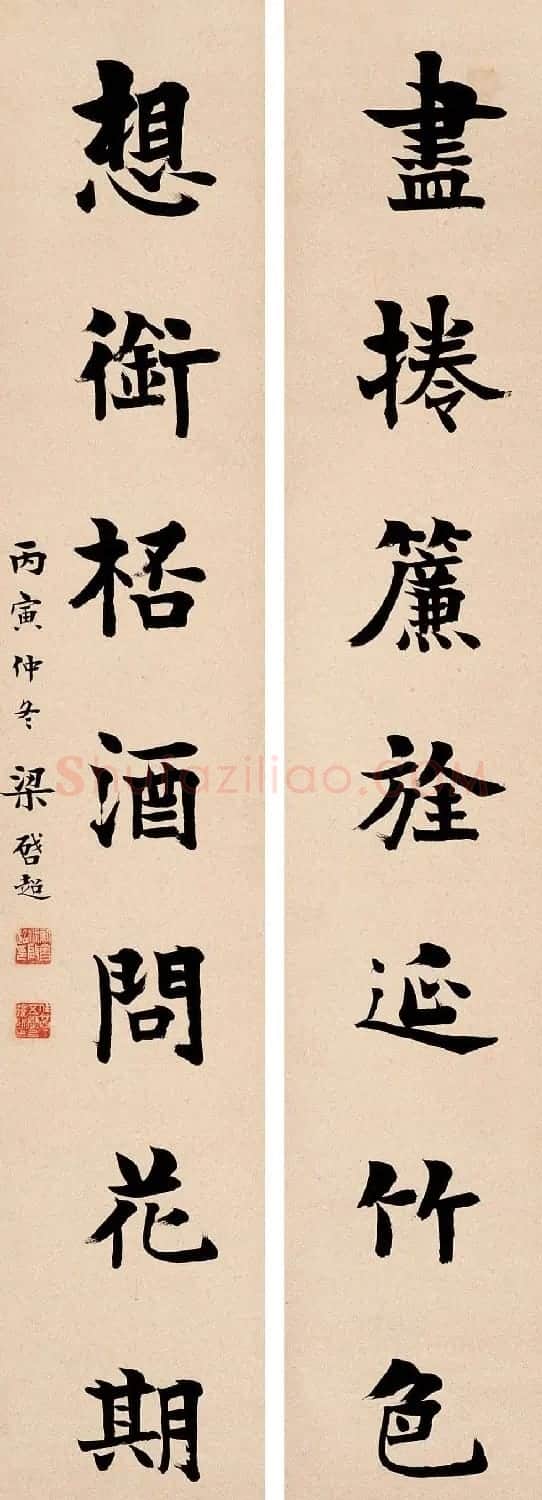 盡捲簾旌延竹色
想銜桮酒問花期
丙寅仲冬梁啓超
Shufaziliao.COM